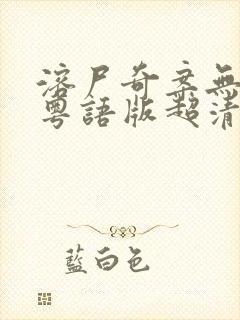 溶尸奇案無
粵語版超清
藍白色